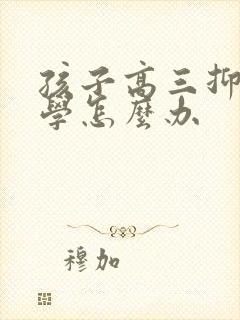 孩子高三抑
學怎麼办
穆加